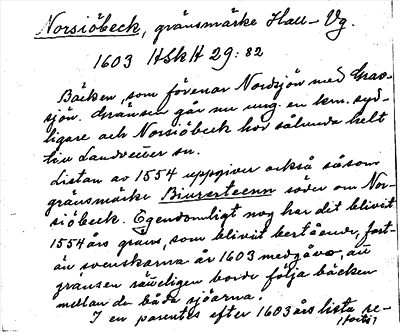 Norsiöbeck, gränsmärke Hall - Vg.
1603 HSkH 29: 82
Bäcken, som förenar Nordsjön med Gras-
sjön. Gränsen går nu ung. en km. syd-
ligare och Norsiöbeck hör sålunda helt
till Landvetter sn.
Listan av 1554 uppgiver också såsom
gränsmärke Biurerteenn söder om Nor-
siöbeck. Egendomligt nog har det blivit
1554 års gräns, som blivit bestående, fast-
än svenskarna år 1603 medgåvo, att
gränsen rätteligen borde följa bäcken
mellan de båda sjöarna.
I en parentes efter 1603 års lista re-
(forts)